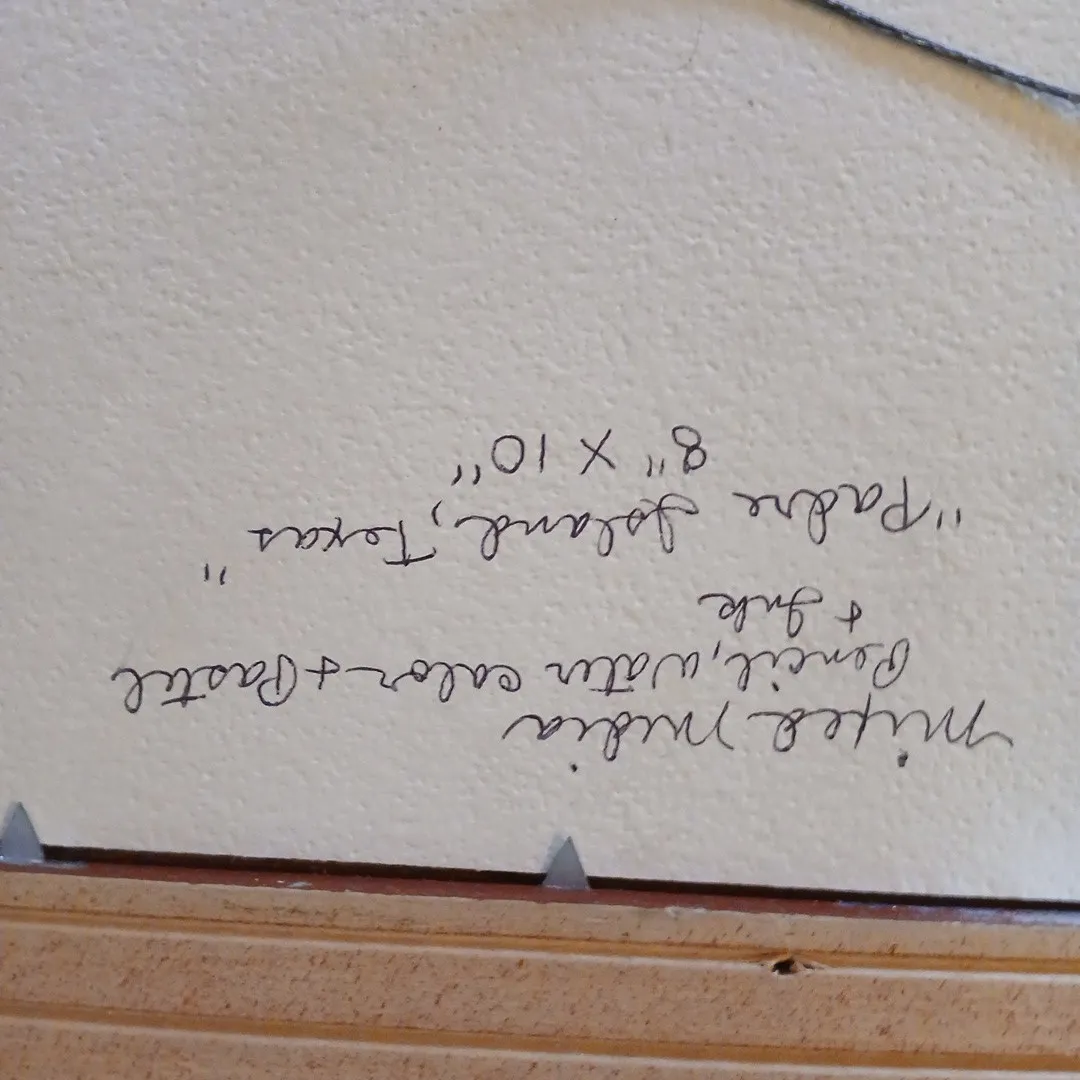 Mixed Media
Pencil, water color + Pastel
+ Ink
"Padre Island, Texas"
8" X 10"